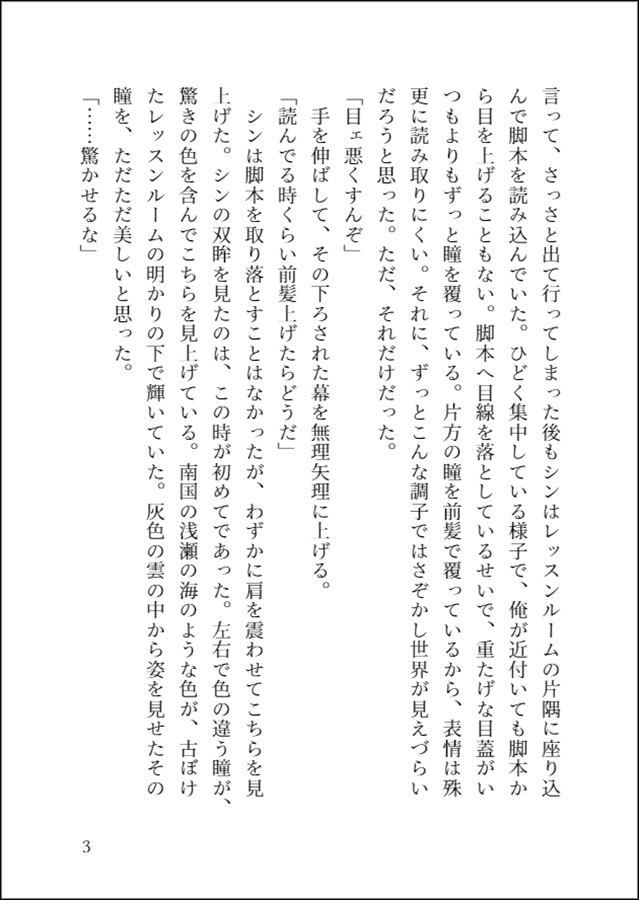 言って、さっさと出て行ってしまった後もシンはレッスンルームの片隅に座り込
んで脚本を読み込んでいた。ひどく集中している様子で、俺が近付いても脚本か
ら目を上げることもない。脚本へ目線を落としているせいで、重たげな目蓋がい
つもよりもずっと瞳を覆っている。片方の瞳を前髪で覆っているから、表情は殊
更に読み取りにくい。それに、ずっとこんな調子ではさぞかし世界が見えづらい
だろうと思った。ただ、それだけだった。
「目ェ悪くすんぞ」
手を伸ばして、その下ろされた幕を無理矢理に上げる。
「読んでる時くらい前髪上げたらどうだ」
シンは脚本を取り落とすことはなかったが、わずかに肩を震わせてこちらを見
上げた。シンの双眸を見たのは、この時が初めてであった。左右で色の違う瞳が、
驚きの色を含んでこちらを見上げている。南国の浅瀬の海のような色が、古ぼけ
たレッスンルームの明かりの下で輝いていた。灰色の雲の中から姿を見せたその
瞳を、ただただ美しいと思った。
「……驚かせるな」
3